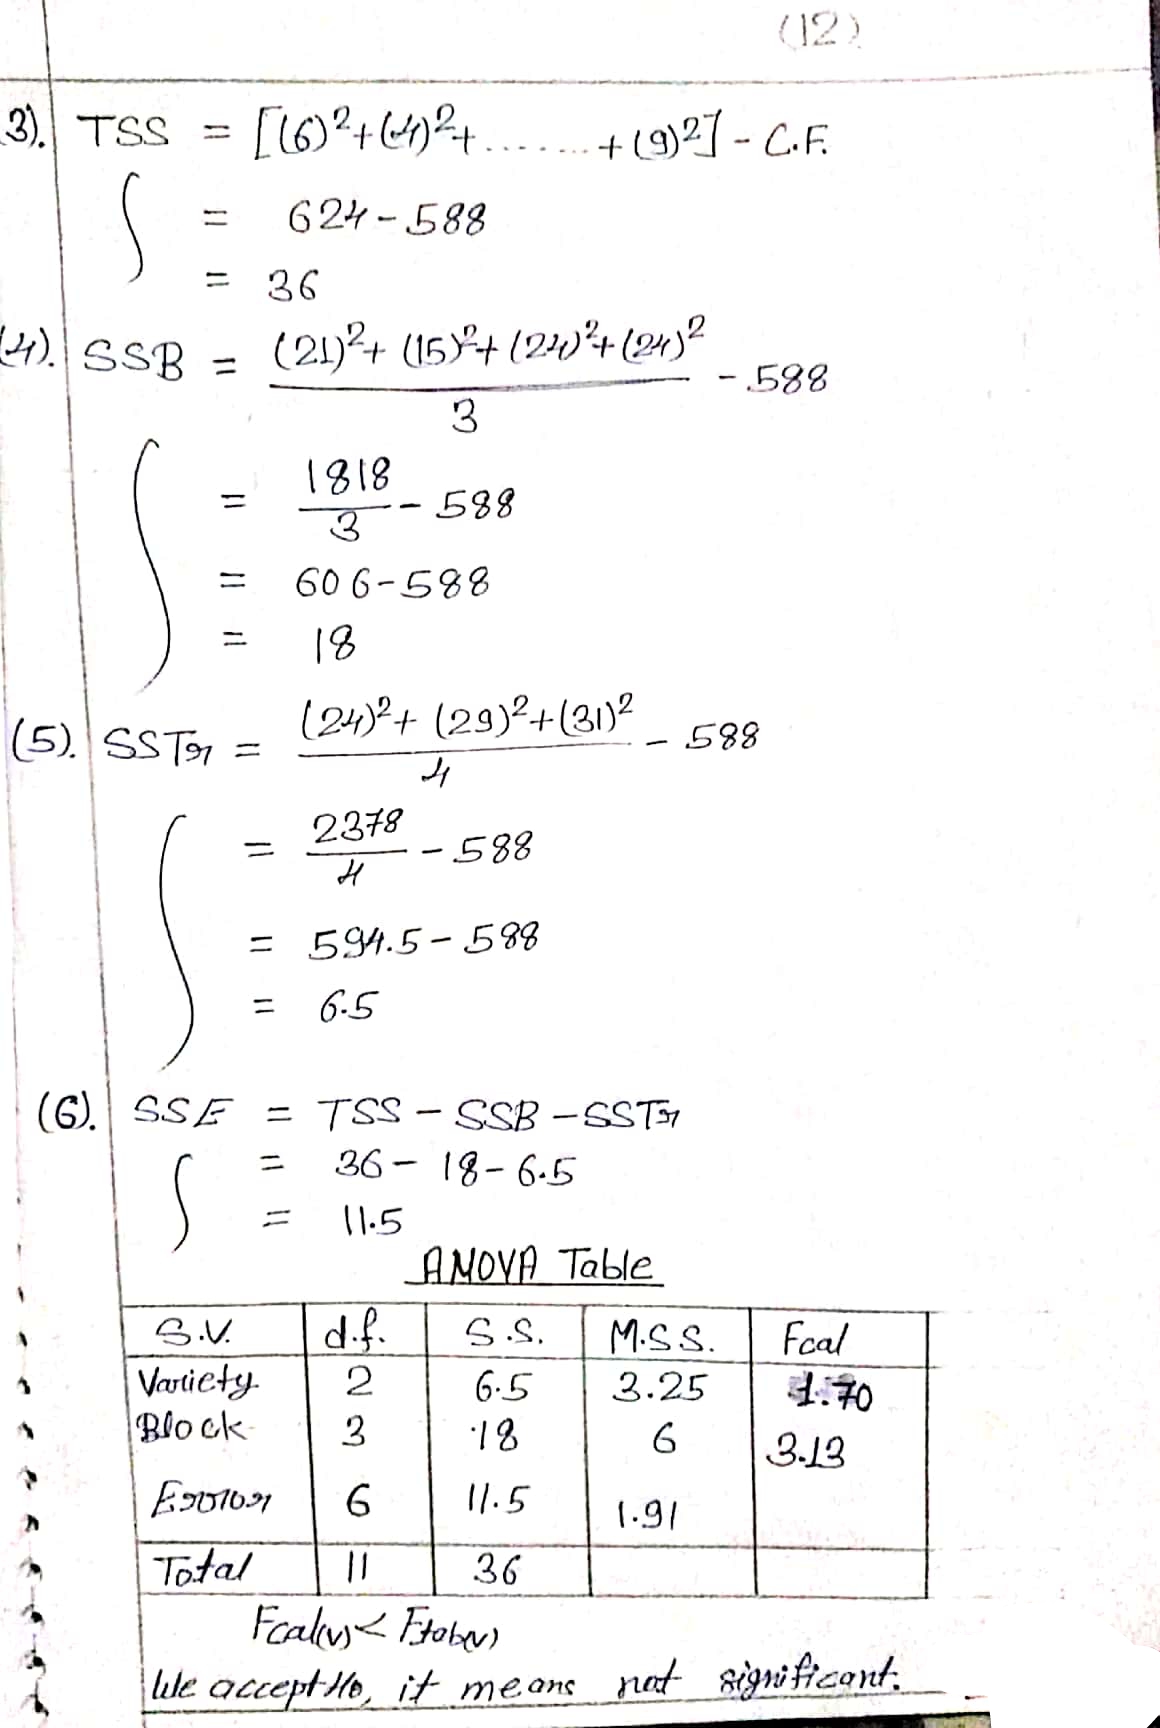 (12)
(3). TSS = [(6)²+(4)²+.......+(9)²] - C.F.
= 624-588
= 36
(4). SSB = (21)²+(15)²+(24)²+(24)² / 3 - 588
= 1818/3 - 588
= 606-588
= 18
(5). SSTr = (24)²+(29)²+(31)² / 4 - 588
= 2378/4 - 588
= 594.5-588
= 6.5
(6). SSE = TSS - SSB - SSTr
= 36 - 18 - 6.5
= 11.5
ANOVA Table
S.V. d.f. S.S. M.S.S. Fcal
Variety 2 6.5 3.25 1.70
Block 3 18 6 3.13
Error 6 11.5 1.91
Total 11 36
Fcal(v) < Ftab(v)
We accept Ho, it means not significant.